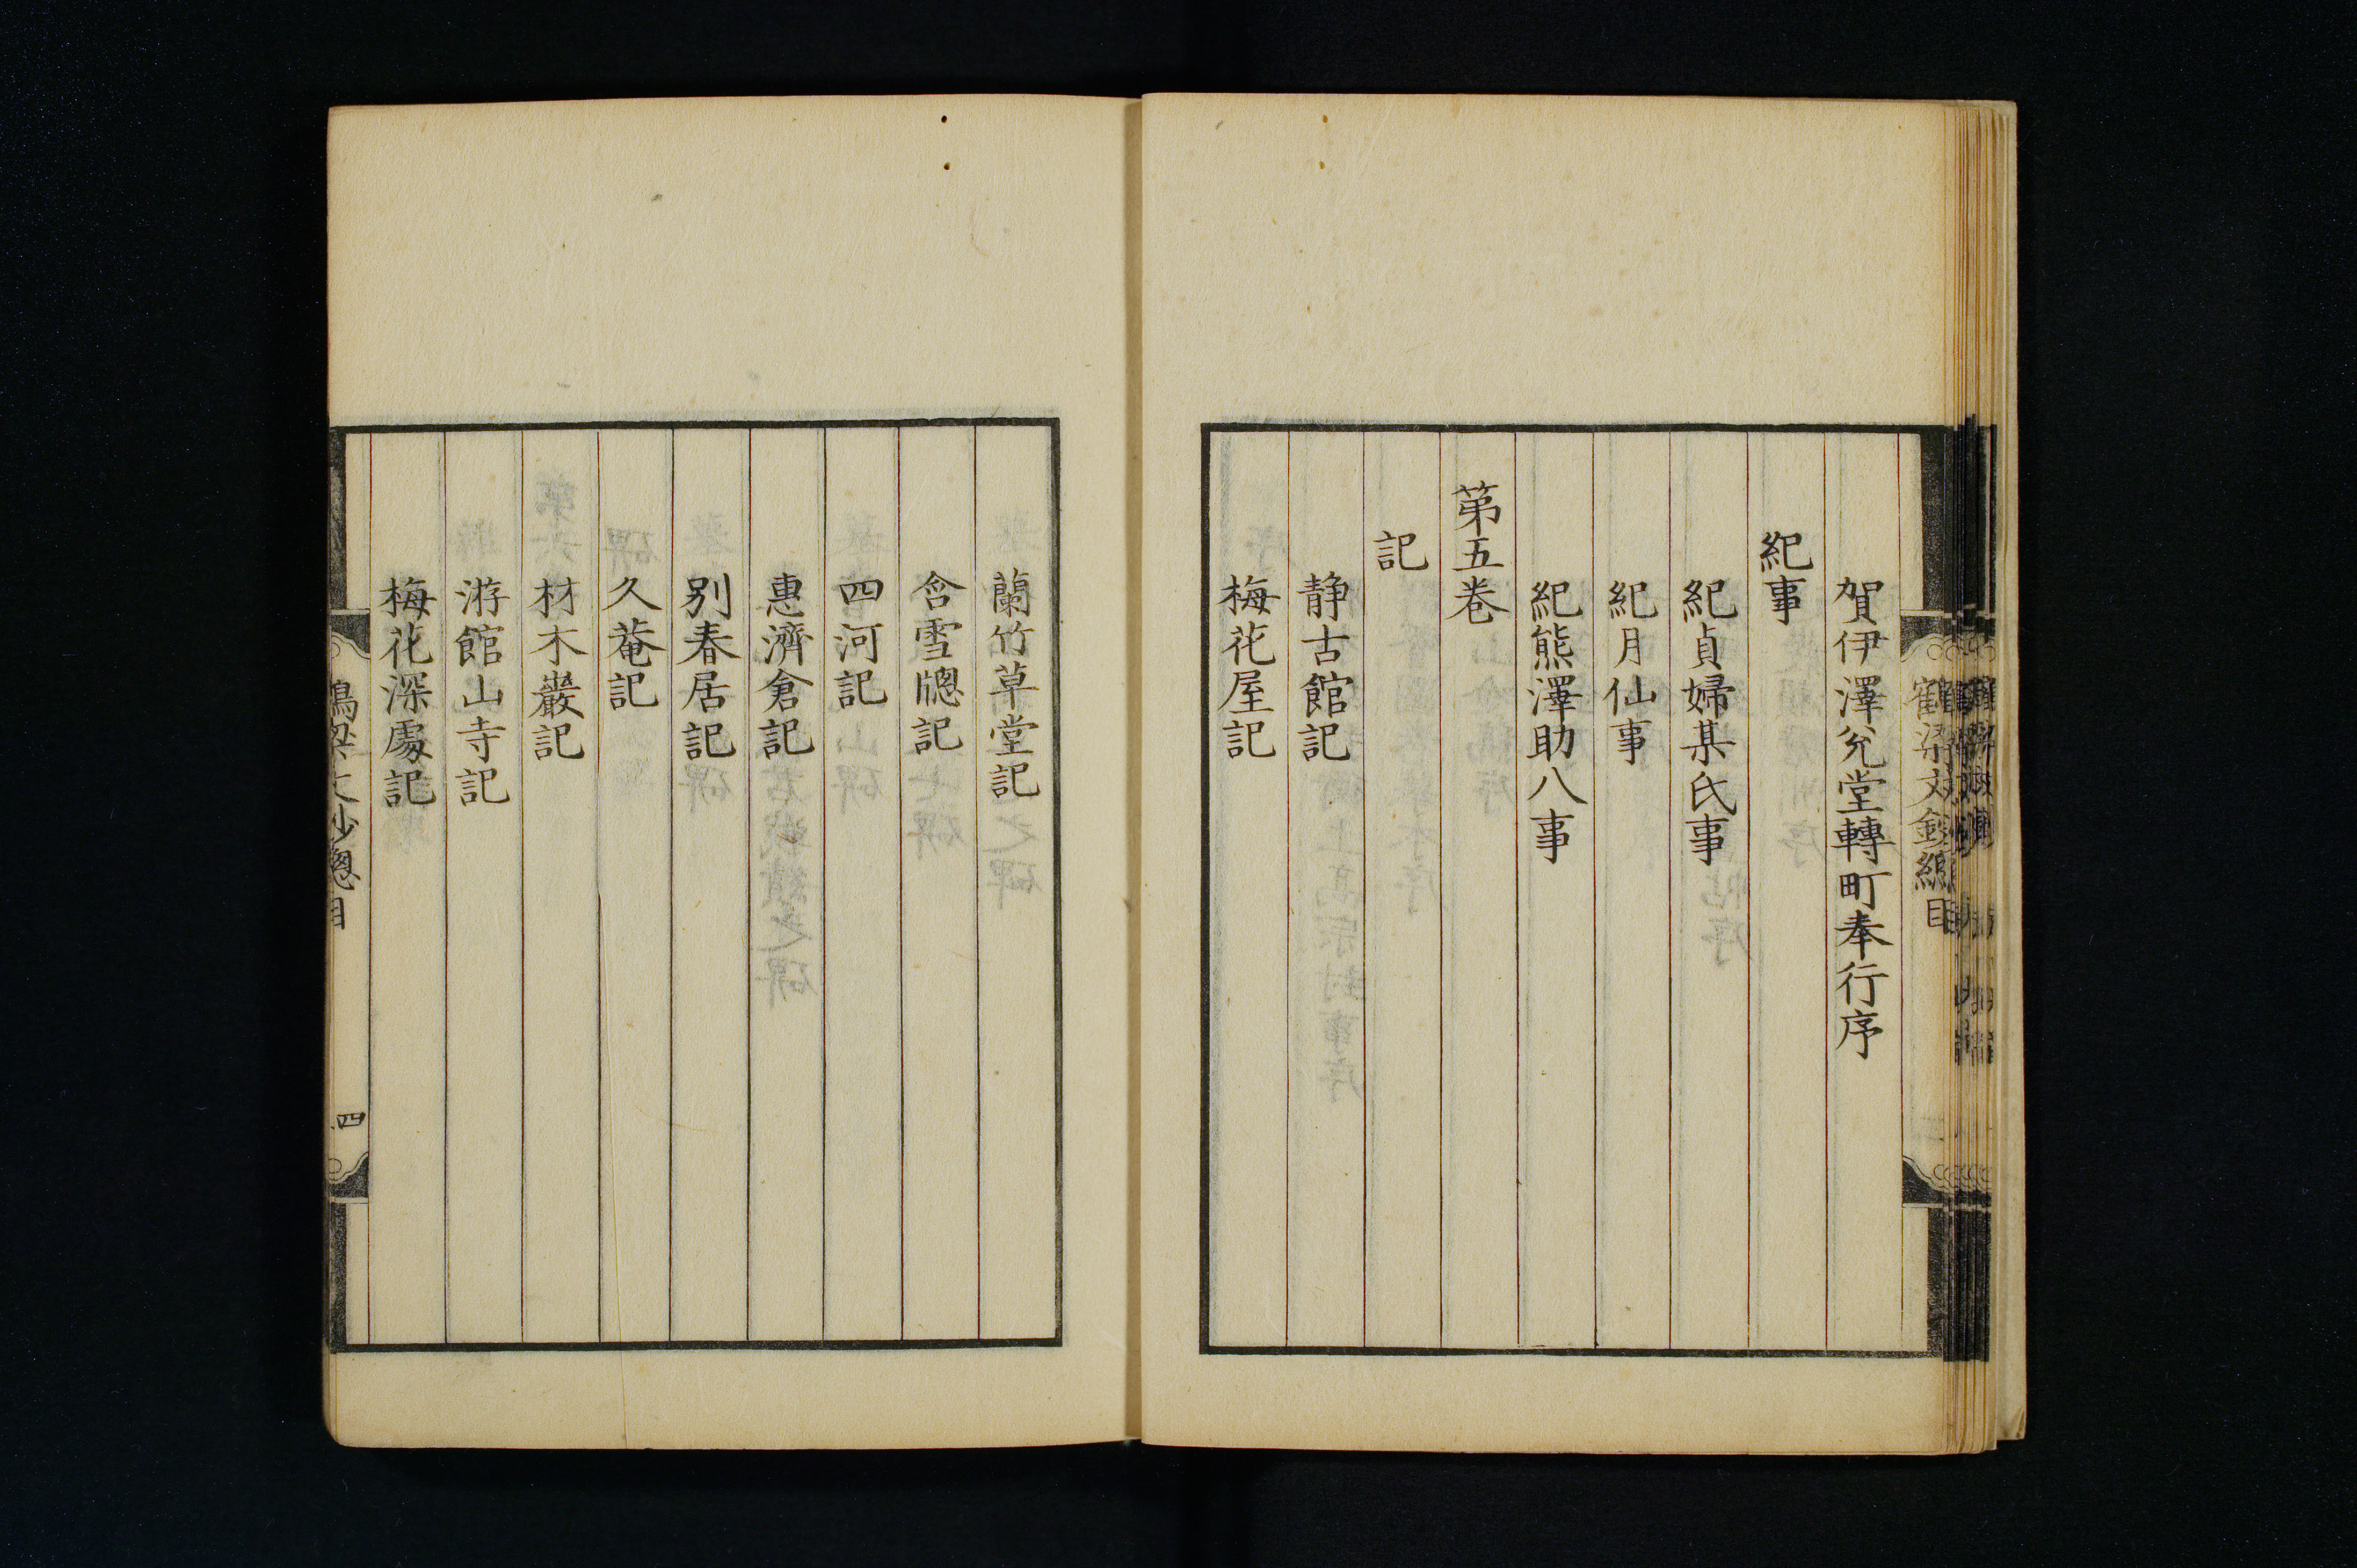 賀伊澤兊堂轉町奉行序
紀事
紀貞婦某氏事
紀月仙事
紀熊澤助八事
第五卷
記
静古館記
梅花屋記
鶴梁文鈔總目
蘭竹草堂記
含雪牕記
四河記
惠濟倉記
别春居記
久菴記
材木巖記
游館山寺記
梅花深處記
四